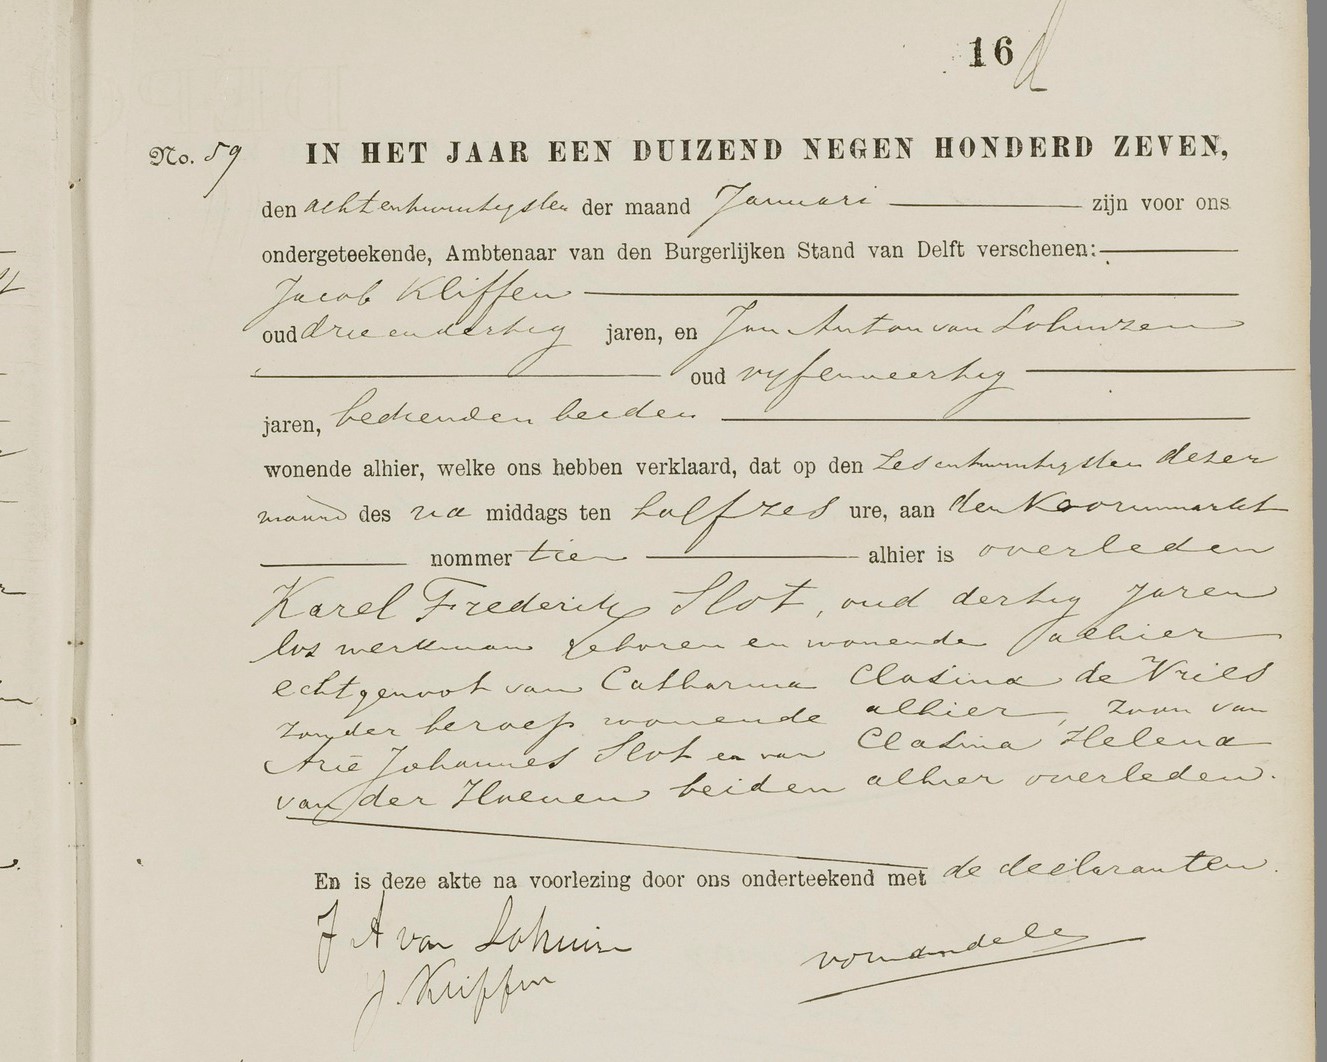 16 d
No. 59 IN HET JAAR EEN DUIZEND NEGEN HONDERD ZEVEN,
den achtentwintigsten der maand Januari zijn voor ons
ondergeteekende, Ambtenaar van den Burgerlijken Stand van Delft verschenen:
Jacob Kliffen
oud drie en dertig jaren, en Jan Anton van Lohuizen
oud vyfenveertig
jaren, bedienden beiden
wonende alhier, welke ons hebben verklaard, dat op den zesentwintigsten dezer
maand des na middags ten half zes ure, aan den Koornmarkt
nommer tien alhier is overleden
Karel Frederik Slot, oud dertig jaren
los werkman geboren en wonende alhier
echtgenoot van Catharina Clasina de Vries
zonder beroep wonende alhier, zoon van
Arie Johannes Slot en van Clasina Helena
van der Hoeven beiden alhier overleden.
En is deze akte na voorlezing door ons onderteekend met de declaranten.
J A van Lohuizen
J. Kliffen